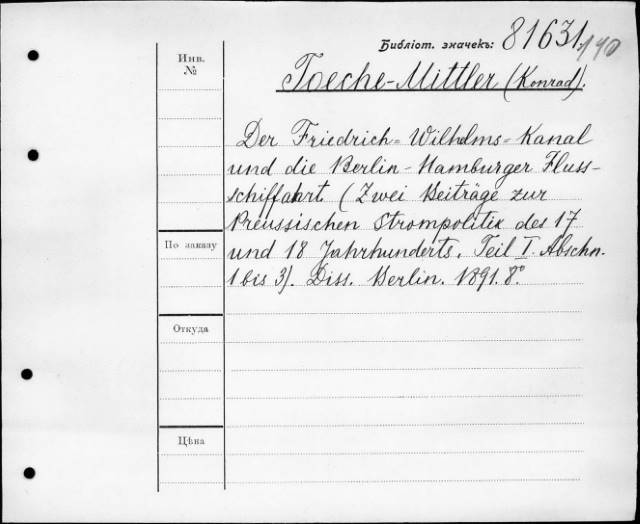 Библіот. значекъ: 81631/190
Инв.
№
Toeche-Mittler (Konrad).
Der Friedrich-Wilhelms-Kanal
und die Berlin-Hamburger Fluss-
schiffahrt (Zwei Beiträge zur
Preussischen Strompolitik des 17
По заказу
und 18 Jahrhunderts. Teil I. Abschn.
1 bis 3). Diss. Berlin. 1891. 8°
Откуда
Цѣна